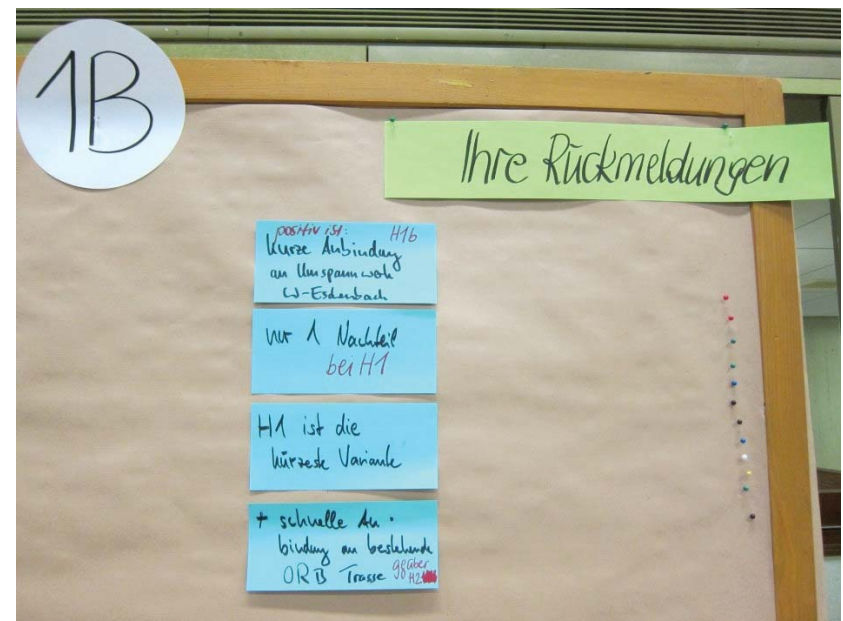 1B
Ihre Rückmeldungen
positiv ist: H1b
kurze Anbindung
an Umspannwerk
W-Eschenbach
nur 1 Nachteil
bei H1
H1 ist die
kürzeste Variante
+ schnelle An-
bindung an bestehende
ORB Trasse ggüber
H2